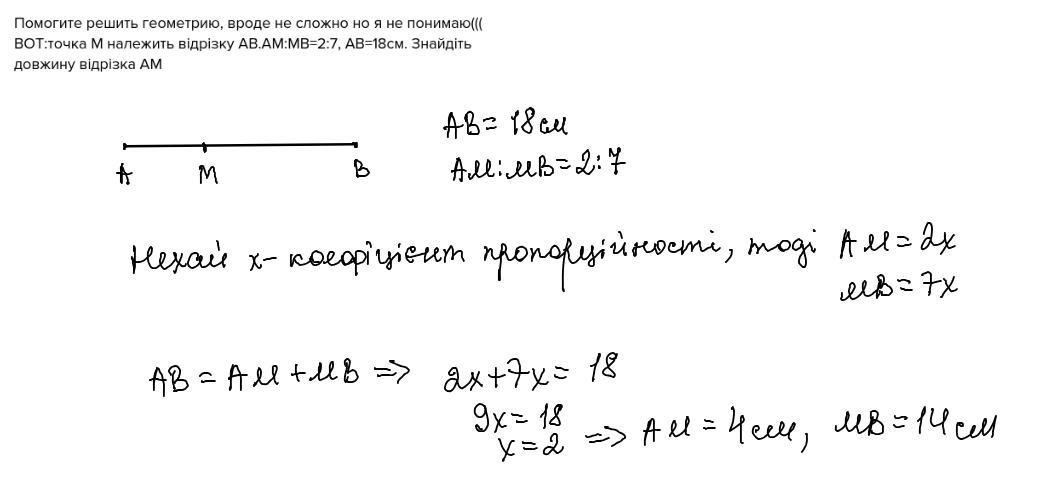 Помогите решить геометрию, вроде не сложно но я не понимаю(((
ВОТ:точка М належить відрізку АВ.АМ:МВ=2:7, АВ=18см. Знайдіть
довжину відрізка АМ
АВ = 18см
А М В
АМ:МВ=2:7
Нехай х- коефіцієнт пропорційності, тоді АМ = 2х
МВ = 7х
АВ = АМ + МВ => 2х+7х = 18
9х = 18
х = 2 => АМ = 4см, МВ = 14см